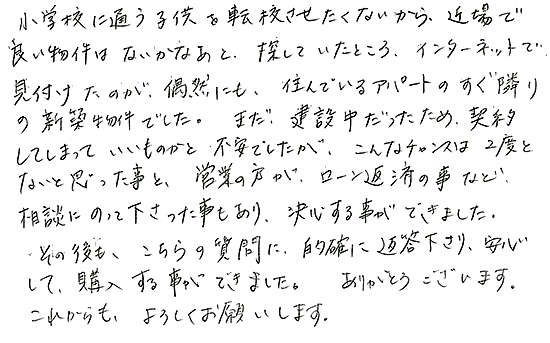 小学校に通う子供を転校させたくないから、近場で
良い物件はないかなあと、探していたところ、インターネットで
見付けたのが、偶然にも、住んでいるアパートのすぐ隣り
の新築物件でした。 まだ、建設中だったため、契約
してしまっていいものかと不安でしたが、こんなチャンスは2度と
ないと思った事と、営業の方が、ローン返済の事など、
相談にのって下さった事もあり、決心する事ができました。
その後も、こちらの質問に、的確に返答下さり、安心
して、購入する事ができました。 ありがとうございます。
これからも、よろしくお願いします。